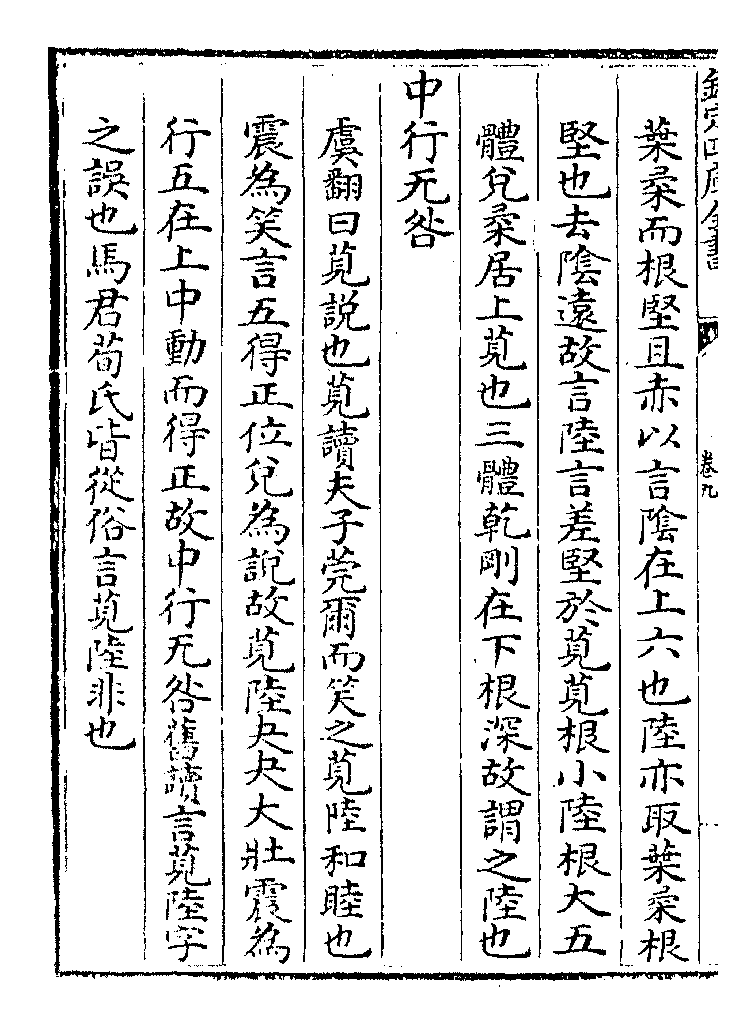 欽定四庫全書
卷九
葉柔而根堅且赤以言陰在上六也陸亦取葉柔根
堅也去陰遠故言陸言差堅於莧莧根小陸根大五
體兌柔居上莧也三體乾剛在下根深故謂之陸也
中行无咎
虞翻曰莧説也莧讀夫子莞爾而笑之莧陸和睦也
震為笑言五得正位兌為說故莧陸夬夬大壯震為
行五在上中動而得正故中行无咎舊讀言莧陸字
之誤也馬君荀氏皆從俗言莧陸非也